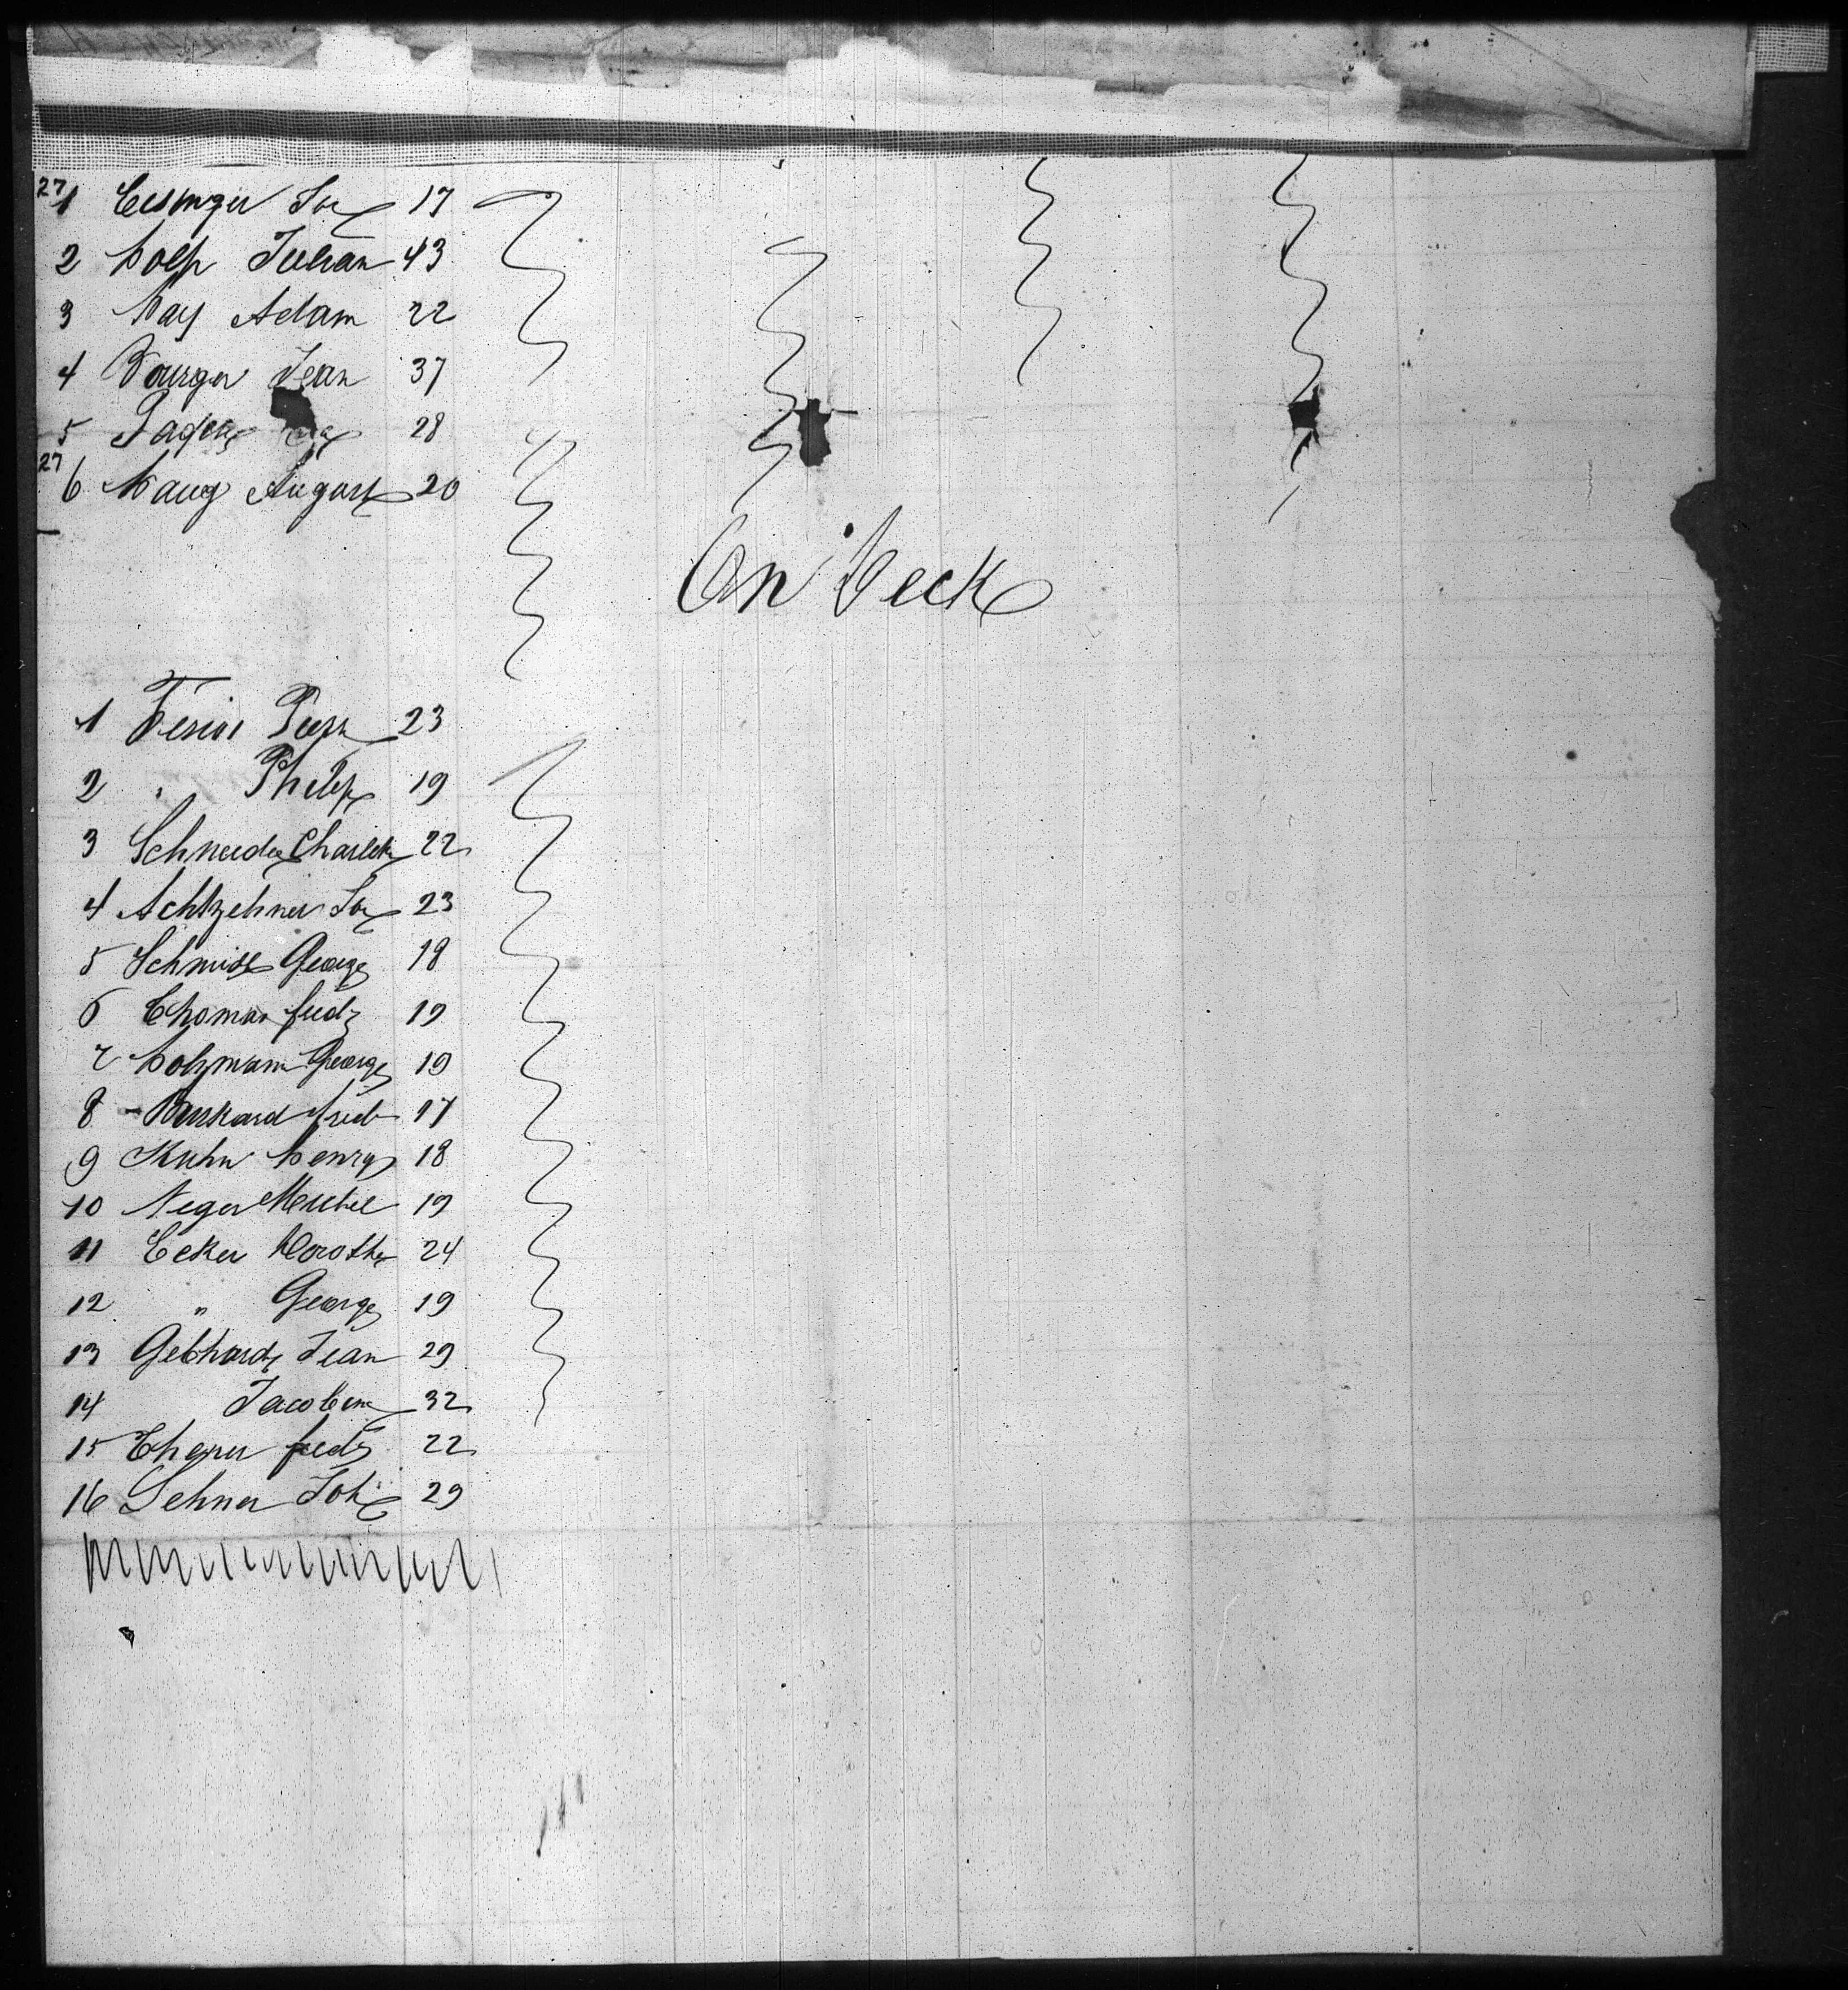 271 Jos 17
2 Holp Julian 43
3 Hay Adam 22
4 Bourger Jean 37
5 28
276 Haug August 20
On Deck
1 Peter 23
2 " Philip 19
3 Schneider Charlotte 22
4 Achtzehner Jos 23
5 Schmidt George 18
6 Thomas fredz 19
7 Holzmann George 19
8 Burkard Fried 17
9 Kuhn Henry 18
10 Neger Michel 19
11 Ecker Dorothe 24
12 " George 19
13 Gebhardz Jean 29
14 Jacobine 32
15 fredz 22
16 Lehner Joh 29